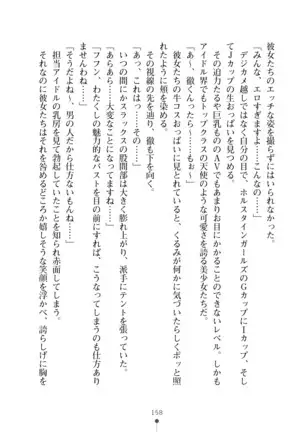 彼女たちのエッチな姿を撮らずにはいられなかった。
「みんな、エロすぎますよ……こんなの……」
デジカメ越しではなく自分の目で、ホルスタインガールズのGカップにIカップ、そし
てJカップの生おっぱいを見つめる。
その迫力たるや巨乳もののAVでもまずお目にかかることのできないレベル。しかも
アイドル界でもトップクラスの天使のような可愛さを誇る美少女たちだ。
「あ〜、徹くんったら〜……もぉ〜」
彼女たちの牛コスおっぱいに見とれていると、くるみが何かに気づいたらしくポッと照
れたように頬を染める。
その視線の先を辿り、徹も下を向く。
「あっ、これはっ……っ」
いつの間にかスラックスの股間部は大きく膨れ上がり、派手にテントを張っていた。
「あらあら……大変なことになってますね……」
「フフン、わたくしの魅力的なバストを目の前にすれば、こうなってしまうのも仕方あり
ませんわ……」
「そうだよね〜、男の人だから仕方ないもんね……」
担当アイドルの乳房を見て勃起していたことを知られ赤面してしまう。
それなのに彼女たちはそれを咎めるどころか嬉しそうな笑顔を浮かべ、誇らしげに胸を
158